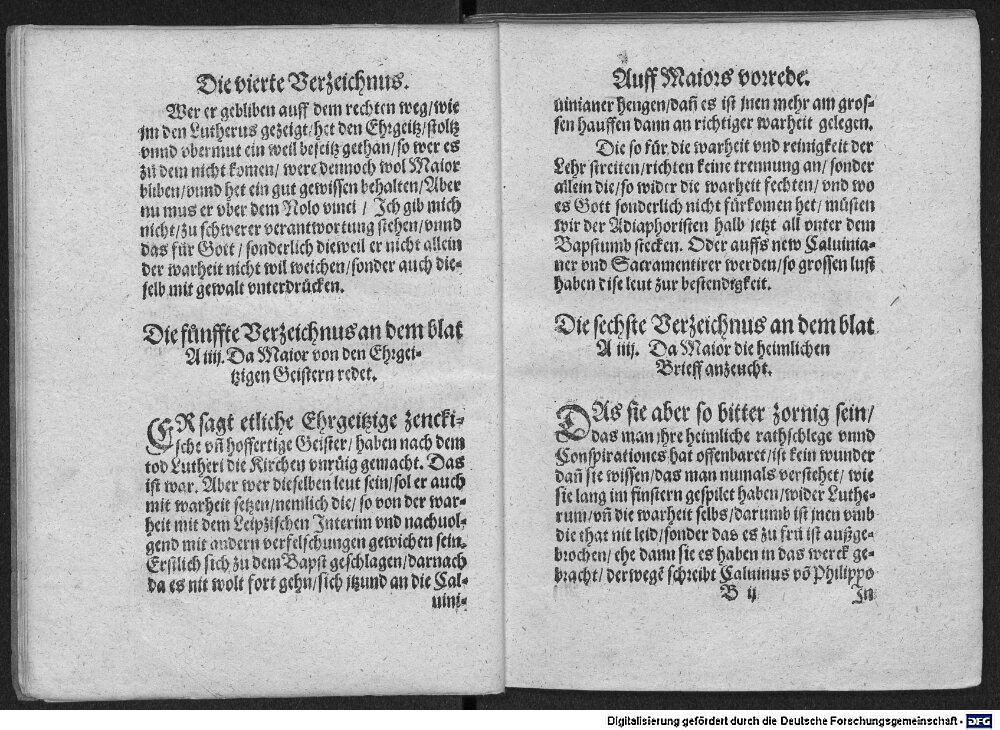 Die vierte Verzeichnus.
Wer er gebliben auff dem rechten weg/wie
jm den Lutherus gezeigt/het den Ehrgeitz/stoltz
vnnd vbermut ein weil beseitz gethan/so wer es
zů dem nicht komen/were dennoch wol Maior
bliben/vnnd het ein gut gewissen behalten/Aber
nu mus er vber dem Nolo vinci / Ich gib mich
nicht/zu schwerer verantwortung stehen/vnnd
das für Gott/sonderlich dieweil er nicht allein
der warheit nicht wil weichen/sonder auch die-
selb mit gewalt vnterdrücken.
Die fünffte Verzeichnus an dem blat
A iiij. Da Maior von den Ehrgei-
tzigen Geistern redet.
ER sagt etliche Ehrgeitzige zencki-
sche vñ hoffertige Geister/haben nach dem
tod Lutheri die Kirchen vnrüig gemacht. Das
ist war. Aber wer dieselben leut sein/sol er auch
mit warheit setzen/nemlich die/so von der war-
heit mit dem Leipzischen Interim vnd nachuol-
gend mit andern verfelschungen gewichen sein.
Erstlich sich zu dem Bapst geschlagen/darnach
da es nit wolt fort gehn/sich jtzund an die Cal-
uini-
Auff Maiors vorrede.
uinianer hengen/dañ es ist jnen mehr am gros-
sen hauffen dann an richtiger warheit gelegen.
Die so für die warheit vnd reinigkeit der
Lehr streiten/richten keine trennung an/sonder
allein die/so wider die warheit fechten/vnd wo
es Gott sonderlich nicht fürkomen het/müsten
wir der Adiaphoristen halb jetzt all vnter dem
Bapstumb stecken. Oder auffs new Caluinia-
ner vnd Sacramentirer werden/so grossen lust
haben dise leut zur bestendigkeit.
Die sechste Verzeichnus an dem blat
A iiij. Da Maior die heimlichen
Brieff anzeucht.
DAs sie aber so bitter zornig sein/
das man jhre heimliche rathschlege vnnd
Conspirationes hat offenbaret/ist kein wunder
dañ sie wissen/das man numals verstehet/wie
sie lang im finstern gespilet haben/wider Luthe-
rum/vñ die warheit selbs/darumb ist jnen vmb
die that nit leid/sonder das es zu frü ist außge-
brochen/ehe dann sie es haben in das werck ge-
bracht/derwegẽ schreibt Caluinus võ Philippo
B ij In
Digitalisierung gefördert durch die Deutsche Forschungsgemeinschaft - DFG